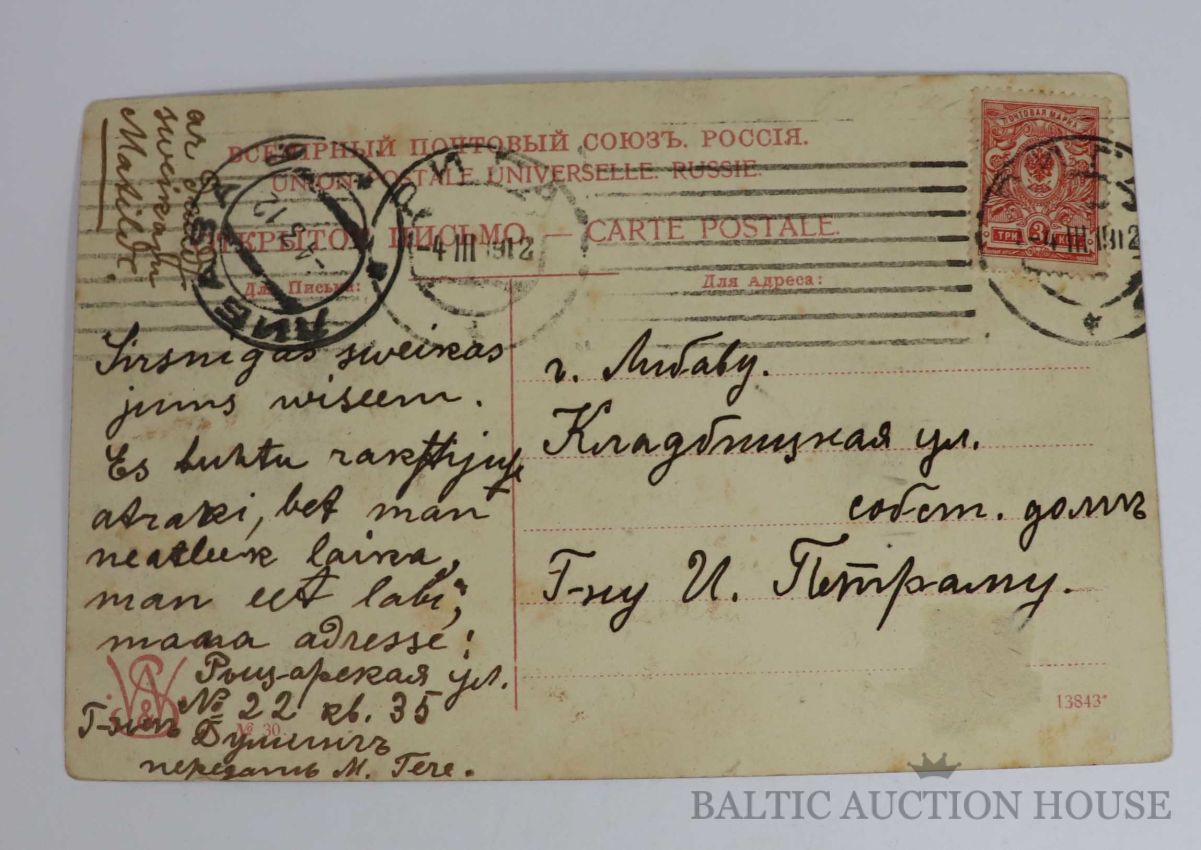 ВСЕМІРНЫЙ ПОЧТОВЫЙ СОЮЗЪ. РОССІЯ.
UNION POSTALE UNIVERSELLE. RUSSIE.
ОТКРЫТОЕ ПИСЬМО. — CARTE POSTALE.
Для Письма:
Для Адреса:
ПОЧТОВАЯ МАРКА
ТРИ 3 КОП
РИГА
-4 III 1912
-4 III 1912
ЛИБАВА
-4 3 12
ar
sweikahm
Matilde
Sirsnigas sweikas
jums wiseem.
Es buhtu rakstijuse
atraki, bet man
neatleek laika,
man eet labi;
mana adresse:
Рыцарская ул.
№ 22 кв. 35
Г-жѣ
передать М. Гече.
г. Либаву.
Кладбищкая ул.
собст. домъ
Г-ну И. Петраму.
№ 30.
13843*
BALTIC AUCTION HOUSE